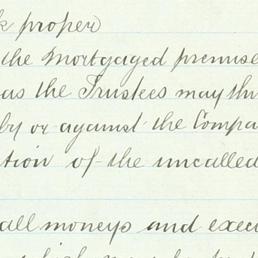 k proper
the Mortgaged premise
as the Trustees may thi
by or against the Compa
tion of the uncalled
all moneys and execu